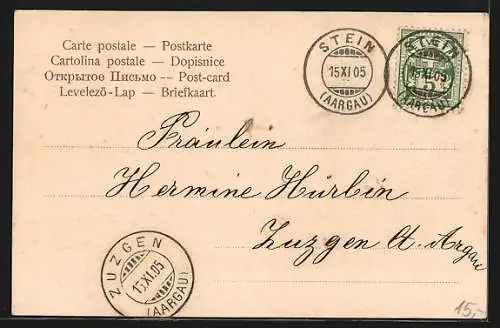 Carte postale — Postkarte
Cartolina postale — Dopisnice
Открытое Письмо -- Post-card
Levelező-Lap — Briefkaart.
STEIN
15.XI.05
(AARGAU)
STEIN
15.XI.05
(AARGAU)
5
Fräulein
Hermine Hürbin
Zuzgen Ct. Argau
ZUZGEN
15.XI.05
(AARGAU)
15,-